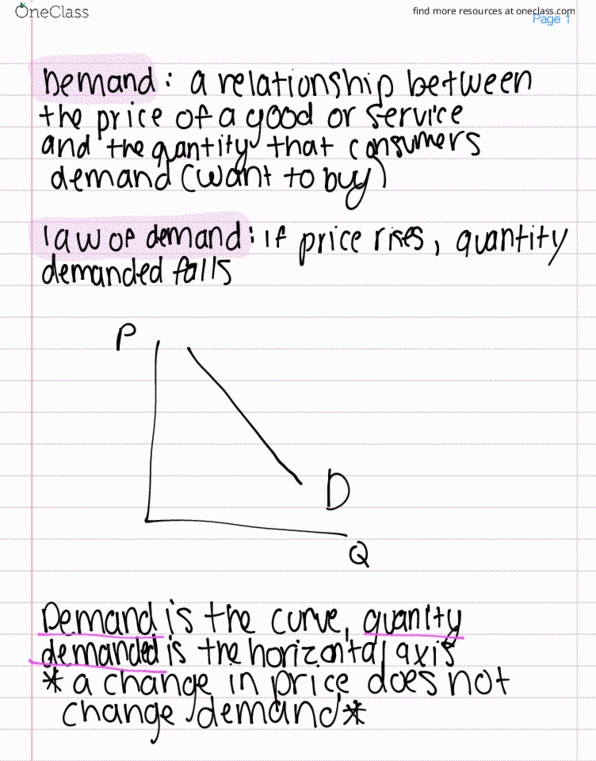 OneClass
find more resources at oneclass.com
Page 1
Demand: a relationship between
the price of a good or service
and the qantity that consumers
demand (want to buy)
law of demand: if price rises, quantity
demanded falls
P
D
Q
Demand is the curve, quanity
demanded is the horizontal axis
* a change in price does not
change demand*